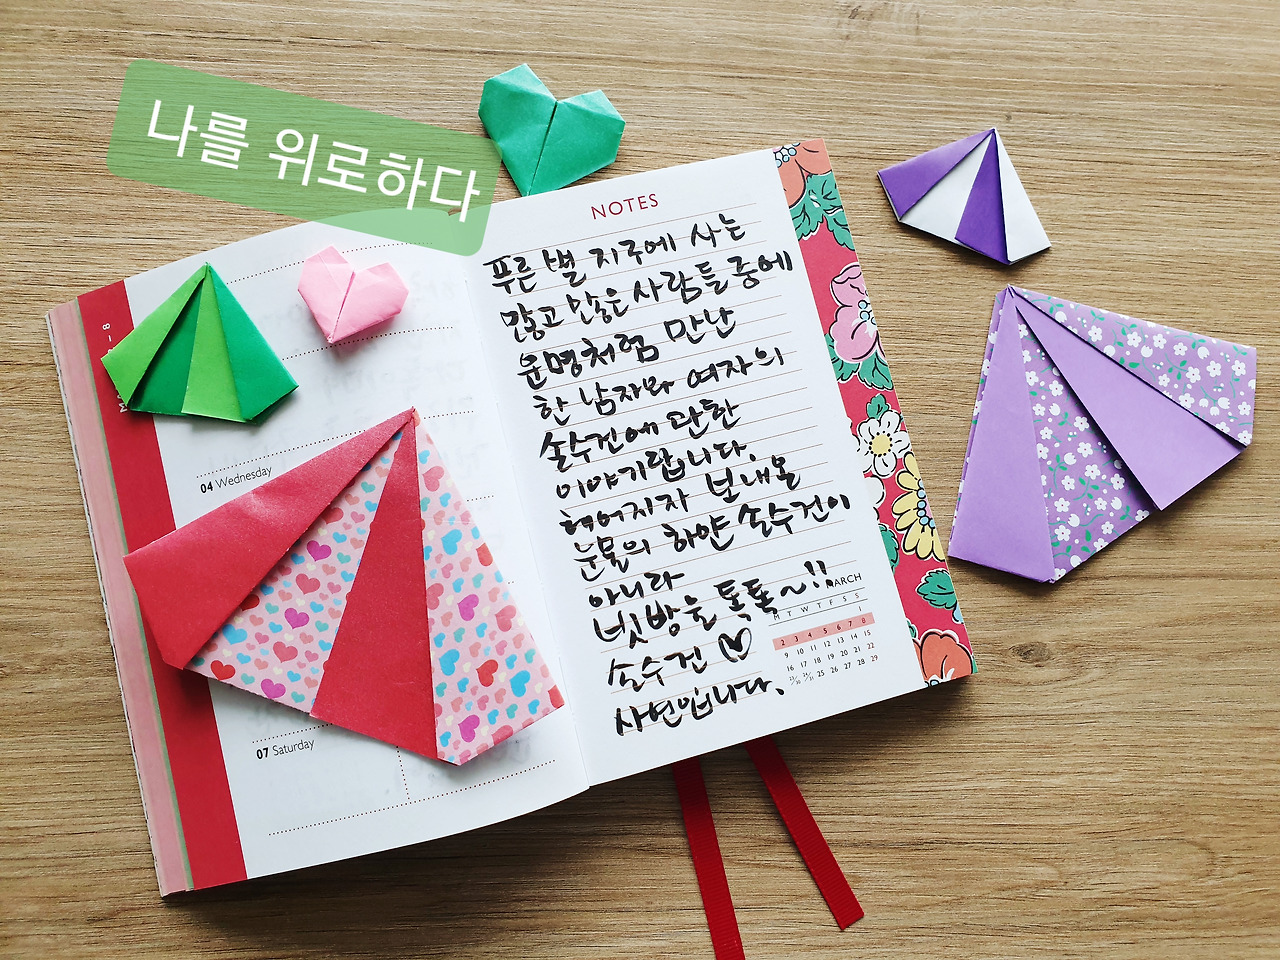 나를 위로하다
04 Wednesday
07 Saturday
NOTES
푸른 별 지구에 사는
많고 많은 사람들 중에
운명처럼 만난
한 남자와 여자의
손수건에 관한
이야기랍니다.
헤어지자 보내온
눈물의 하얀 손수건이
아니라
빗방울 톡톡~!!
손수건
사연입니다.
MARCH
M T W T F S S
1
2 3 4 5 6 7 8
9 10 11 12 13 14 15
16 17 18 19 20 21 22
23/30 24/31 25 26 27 28 29